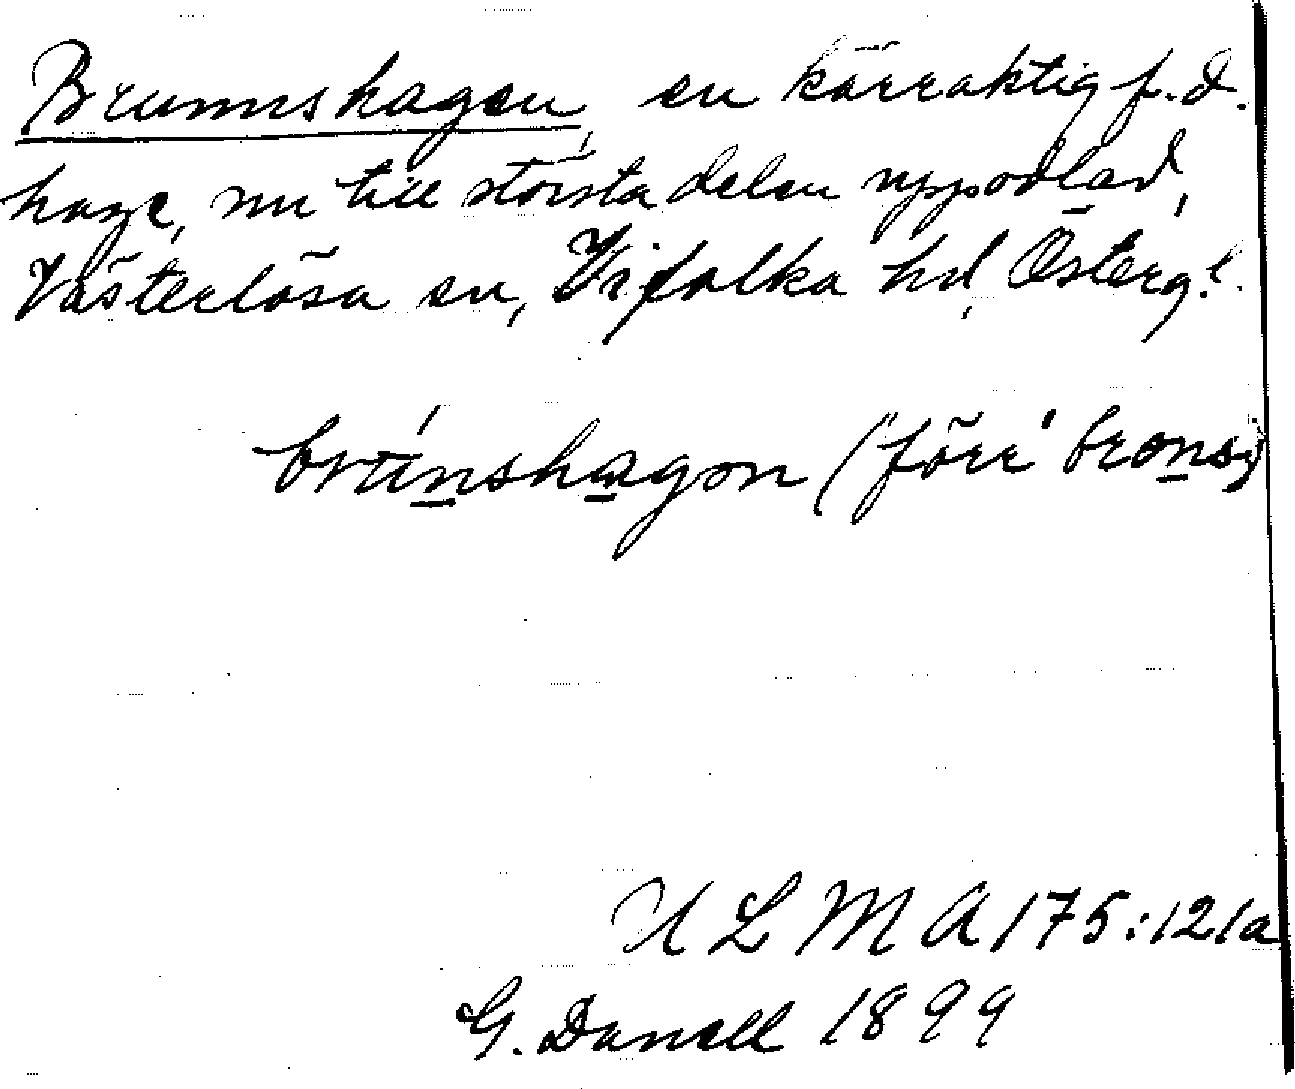 Brunnshagen, en kärraktig f.d.
hage, nu till största delen uppodlad,
Västerlösa sn, Vifolka hd, Österg.l.
brunshagən (förr brons-)
ULMA 175:121a
G. Danell 1899